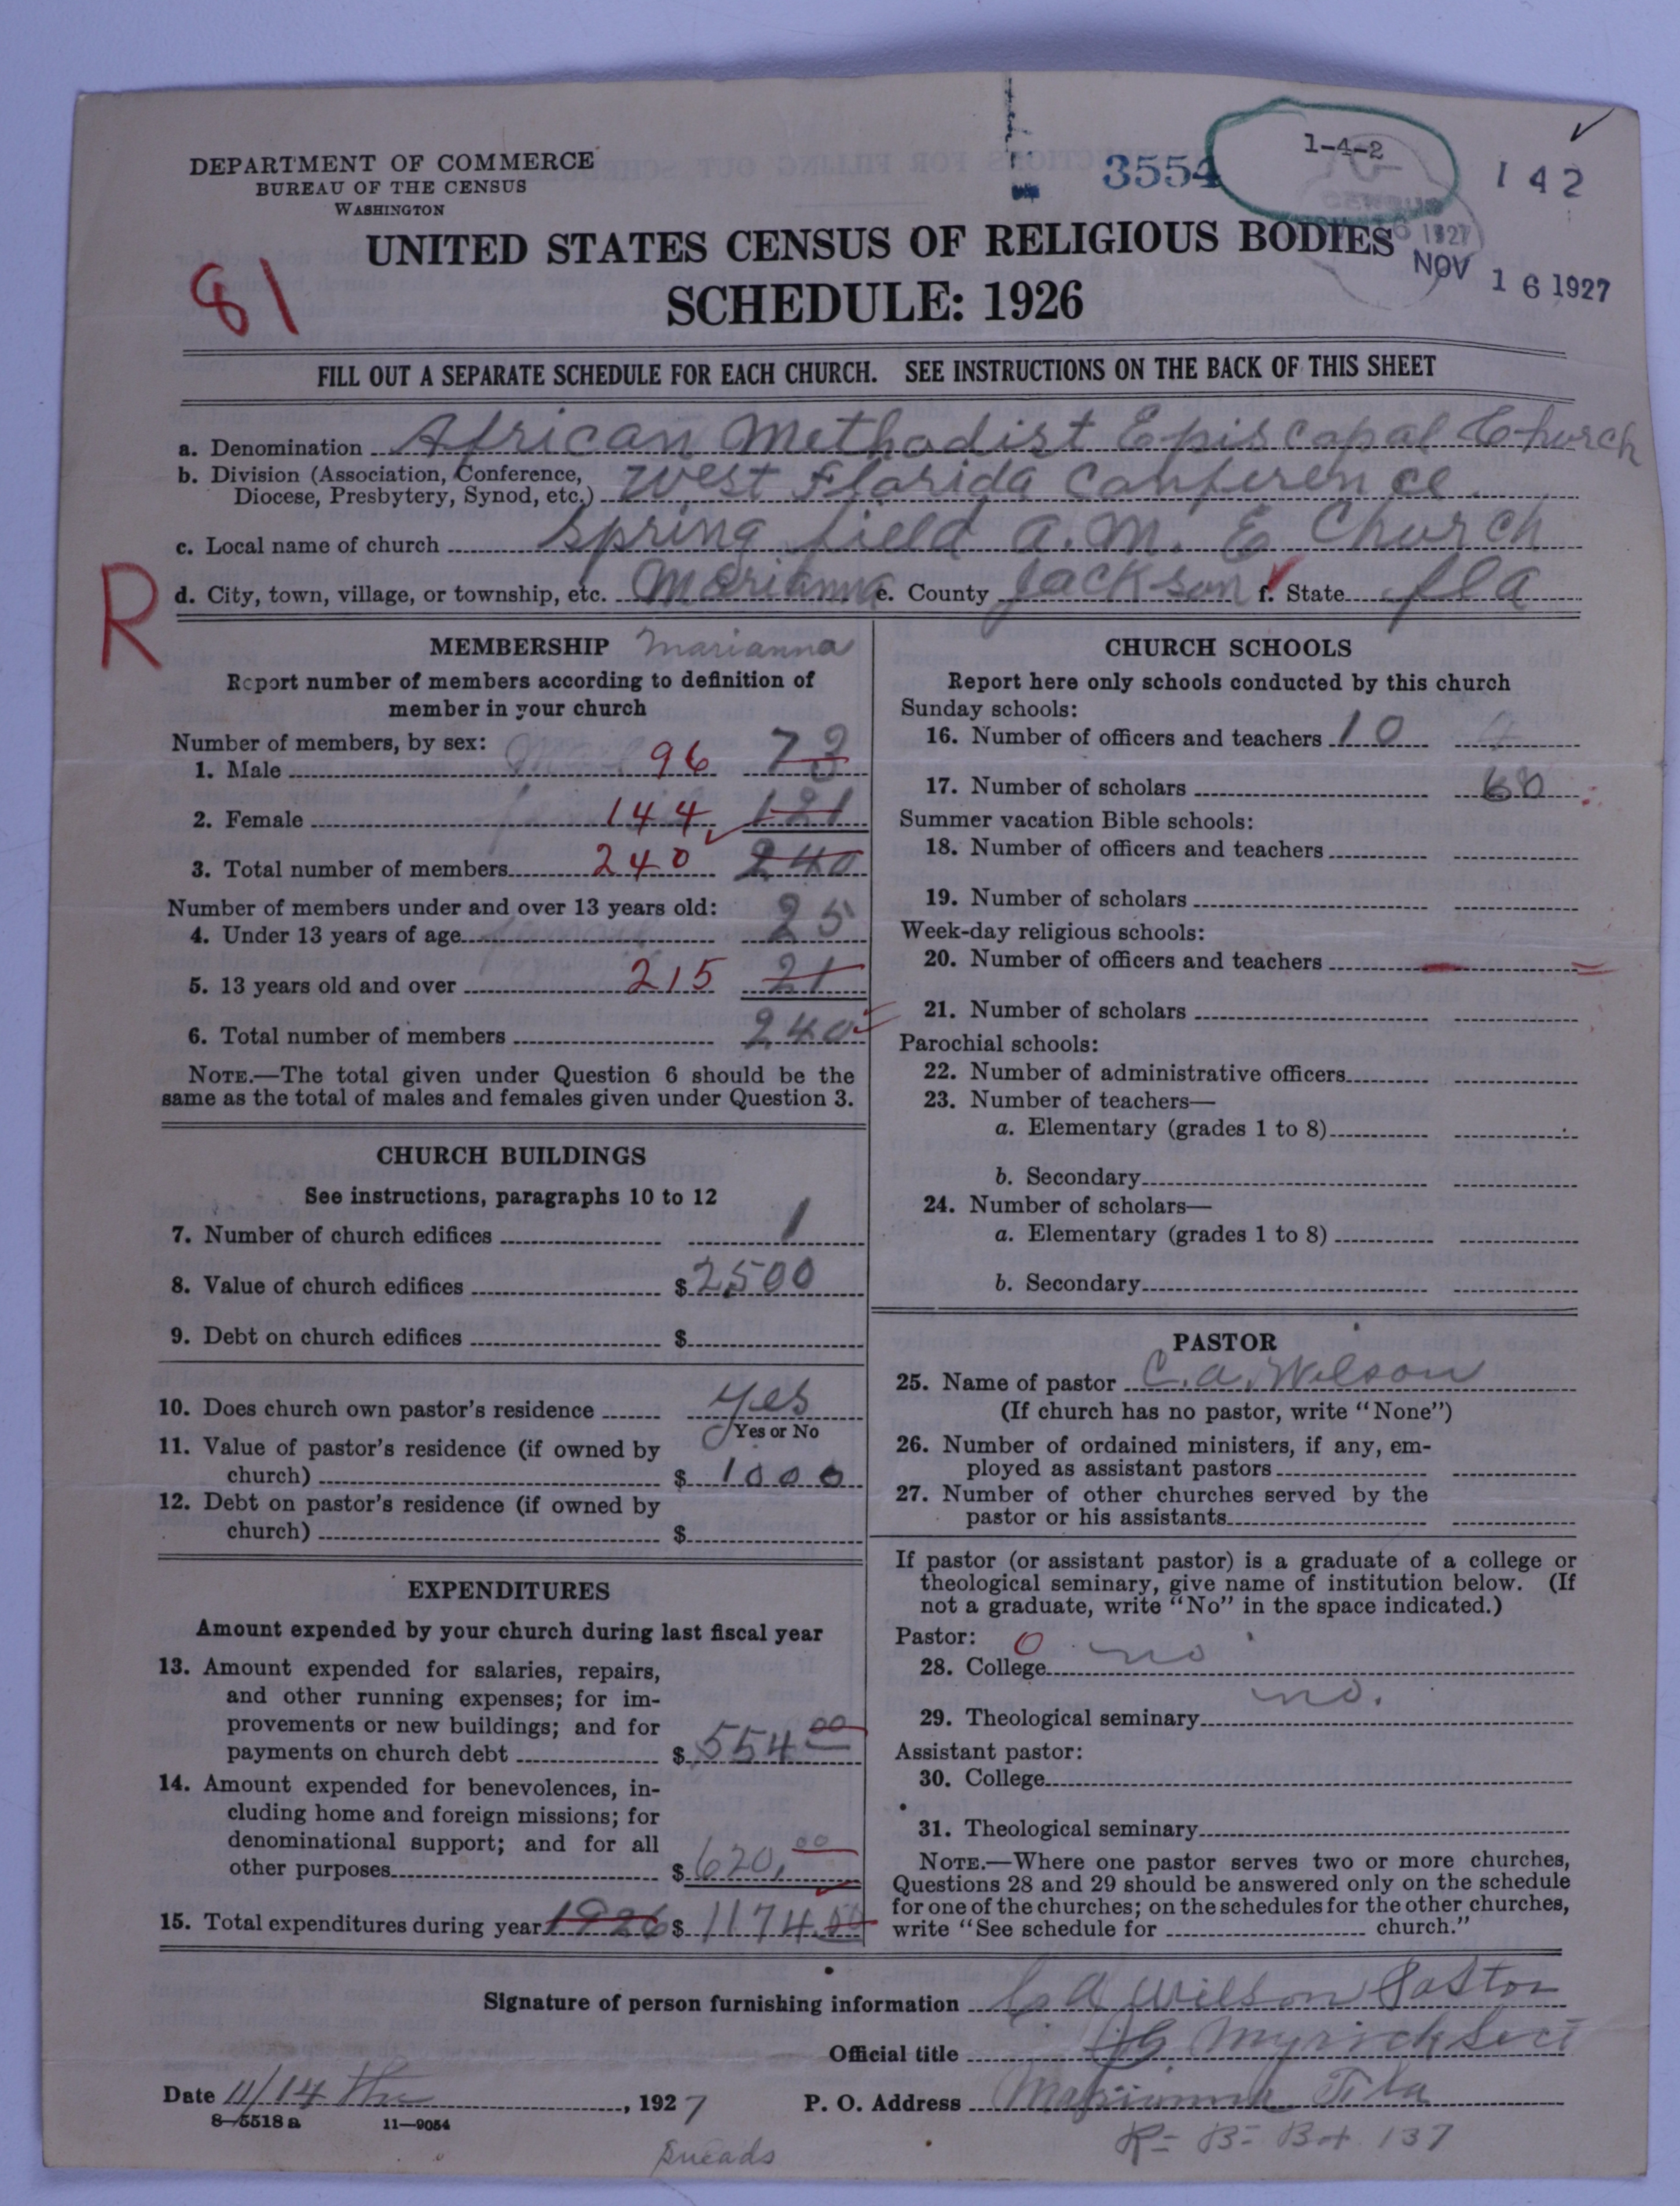 DEPARTMENT OF COMMERCE
BUREAU OF THE CENSUS
WASHINGTON
3554
1-4-2
142
CENSUS
1927
NOV 16 1927
UNITED STATES CENSUS OF RELIGIOUS BODIES
SCHEDULE: 1926
81
FILL OUT A SEPARATE SCHEDULE FOR EACH CHURCH. SEE INSTRUCTIONS ON THE BACK OF THIS SHEET
a. Denomination African Methodist Episcopal Church
b. Division (Association, Conference,
Diocese, Presbytery, Synod, etc.) West Florida Conference
c. Local name of church Spring field A. M. E Church
R
d. City, town, village, or township, etc. Marianna e. County Jackson f. State Fla
MEMBERSHIP Marianna
Report number of members according to definition of
member in your church
Number of members, by sex:
1. Male 96 73
2. Female 144 121
3. Total number of members 240 240
Number of members under and over 13 years old:
4. Under 13 years of age 25
5. 13 years old and over 215 21
6. Total number of members 240
NOTE.—The total given under Question 6 should be the
same as the total of males and females given under Question 3.
CHURCH BUILDINGS
See instructions, paragraphs 10 to 12
7. Number of church edifices 1
8. Value of church edifices $ 2500
9. Debt on church edifices $
10. Does church own pastor's residence yes
Yes or No
11. Value of pastor's residence (if owned by
church) $ 1000
12. Debt on pastor's residence (if owned by
church) $
EXPENDITURES
Amount expended by your church during last fiscal year
13. Amount expended for salaries, repairs,
and other running expenses; for im-
provements or new buildings; and for
payments on church debt $ 554 00
14. Amount expended for benevolences, in-
cluding home and foreign missions; for
denominational support; and for all
other purposes $ 620. 00
15. Total expenditures during year 1926 $ 1174.00
CHURCH SCHOOLS
Report here only schools conducted by this church
Sunday schools:
16. Number of officers and teachers 10
17. Number of scholars 60
Summer vacation Bible schools:
18. Number of officers and teachers
19. Number of scholars
Week-day religious schools:
20. Number of officers and teachers
21. Number of scholars
Parochial schools:
22. Number of administrative officers
23. Number of teachers—
a. Elementary (grades 1 to 8)
b. Secondary
24. Number of scholars—
a. Elementary (grades 1 to 8)
b. Secondary
PASTOR
25. Name of pastor C. A. Wilson
(If church has no pastor, write "None")
26. Number of ordained ministers, if any, em-
ployed as assistant pastors
27. Number of other churches served by the
pastor or his assistants
If pastor (or assistant pastor) is a graduate of a college or
theological seminary, give name of institution below. (If
not a graduate, write "No" in the space indicated.)
Pastor: 0
28. College no
29. Theological seminary no.
Assistant pastor:
30. College
31. Theological seminary
NOTE.—Where one pastor serves two or more churches,
Questions 28 and 29 should be answered only on the schedule
for one of the churches; on the schedules for the other churches,
write "See schedule for church."
Signature of person furnishing information C A Wilson Pastor
Official title Myrick Sect
Date 11/14 the, 1927 P. O. Address Marianna Fla
8-5518 a 11-9054
R- B- Box 137
Sneads